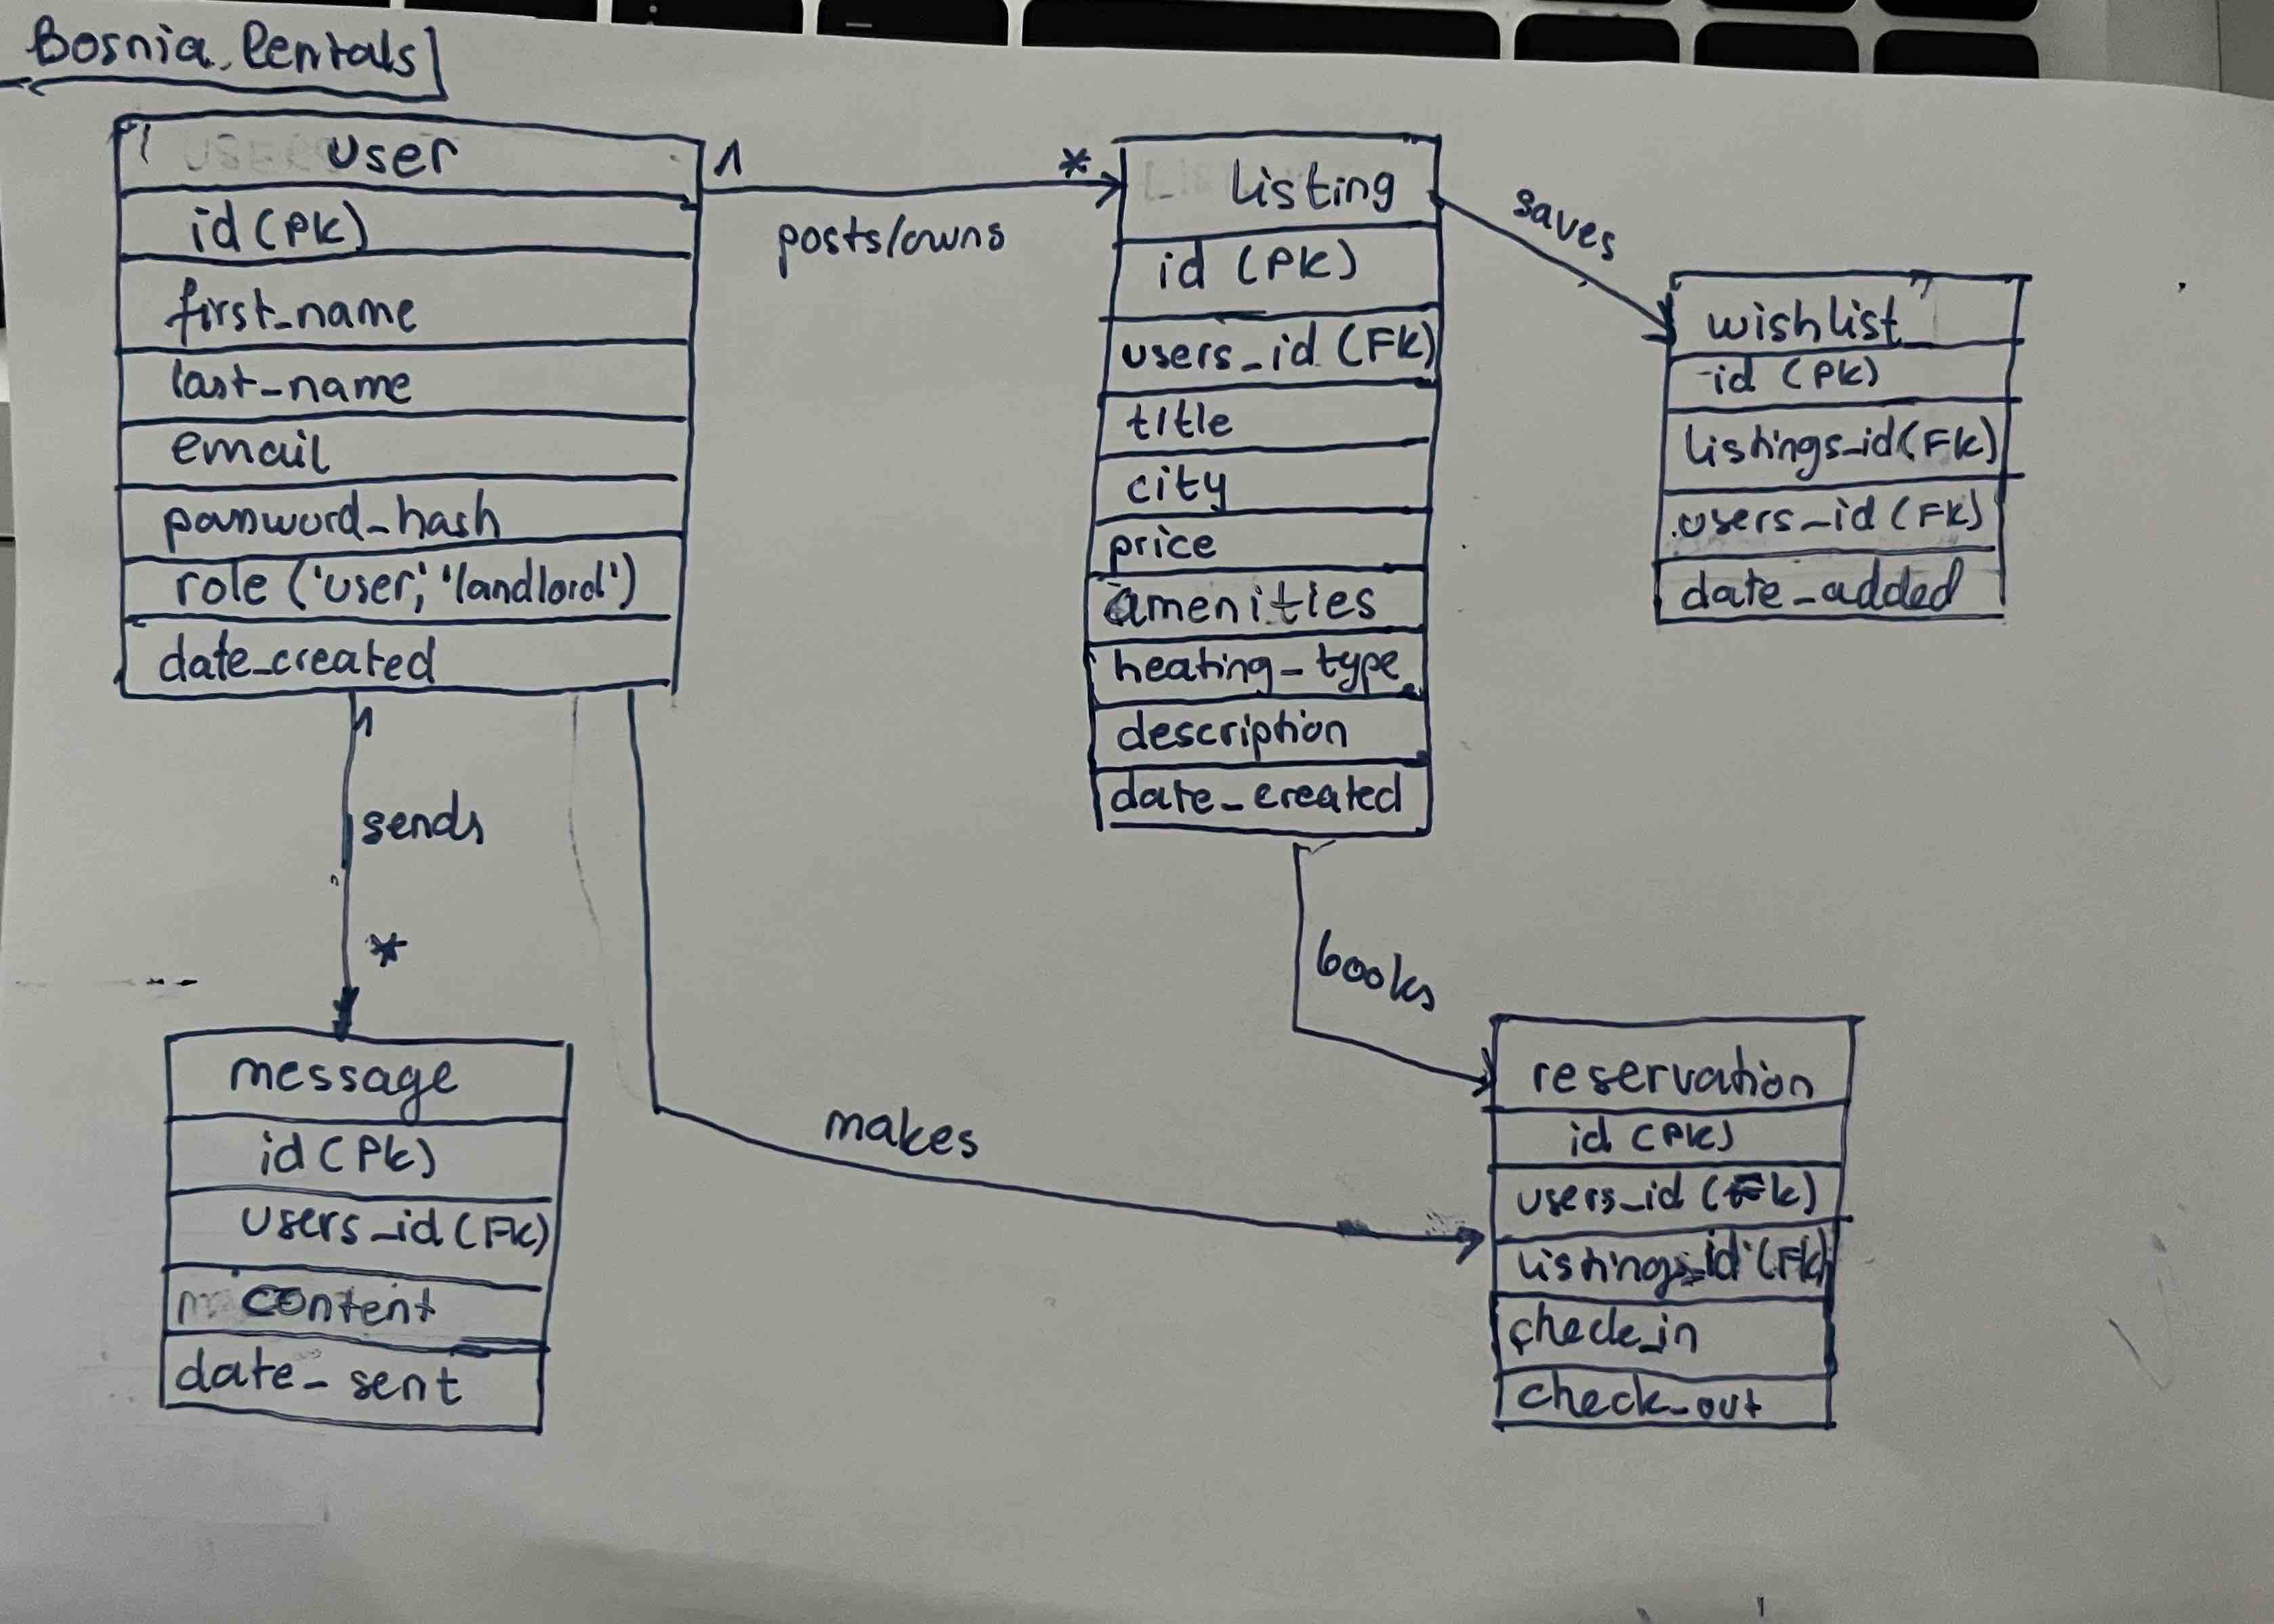 Bosnia Rentals
user
id (PK)
first_name
last_name
email
password_hash
role ('user', 'landlord')
date_created
1
*
posts/owns
listing
id (PK)
users_id (FK)
title
city
price
amenities
heating_type
description
date_created
saves
wishlist
id (PK)
listings_id (FK)
users_id (FK)
date_added
1
sends
*
message
id (PK)
users_id (FK)
content
date_sent
makes
books
reservation
id (PK)
users_id (FK)
listings_id (FK)
check_in
check_out